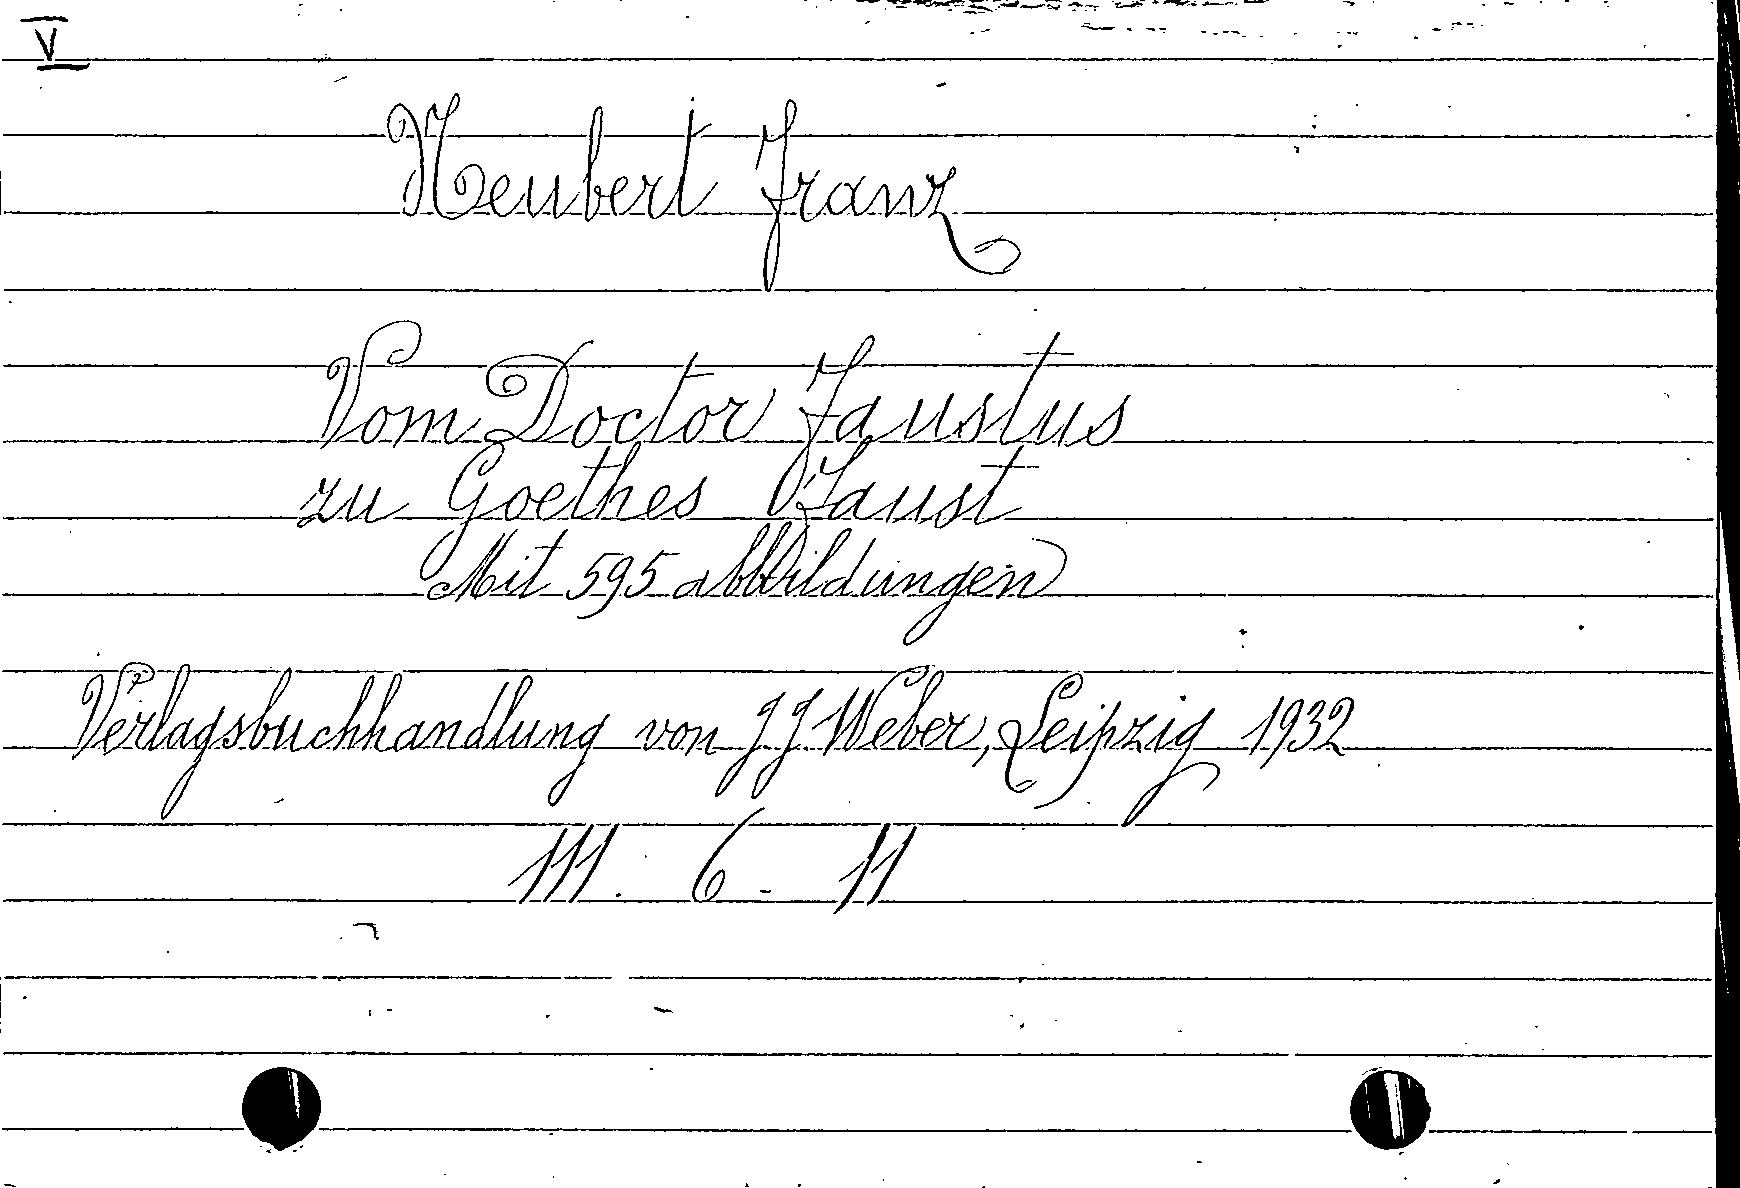 V
Neubert Franz
Vom Doctor Faustus
zu Goethes Faust
Mit 595 abbildungen
Verlagsbuchhandlung von J J Weber, Leipzig 1932
111. 6 - 11